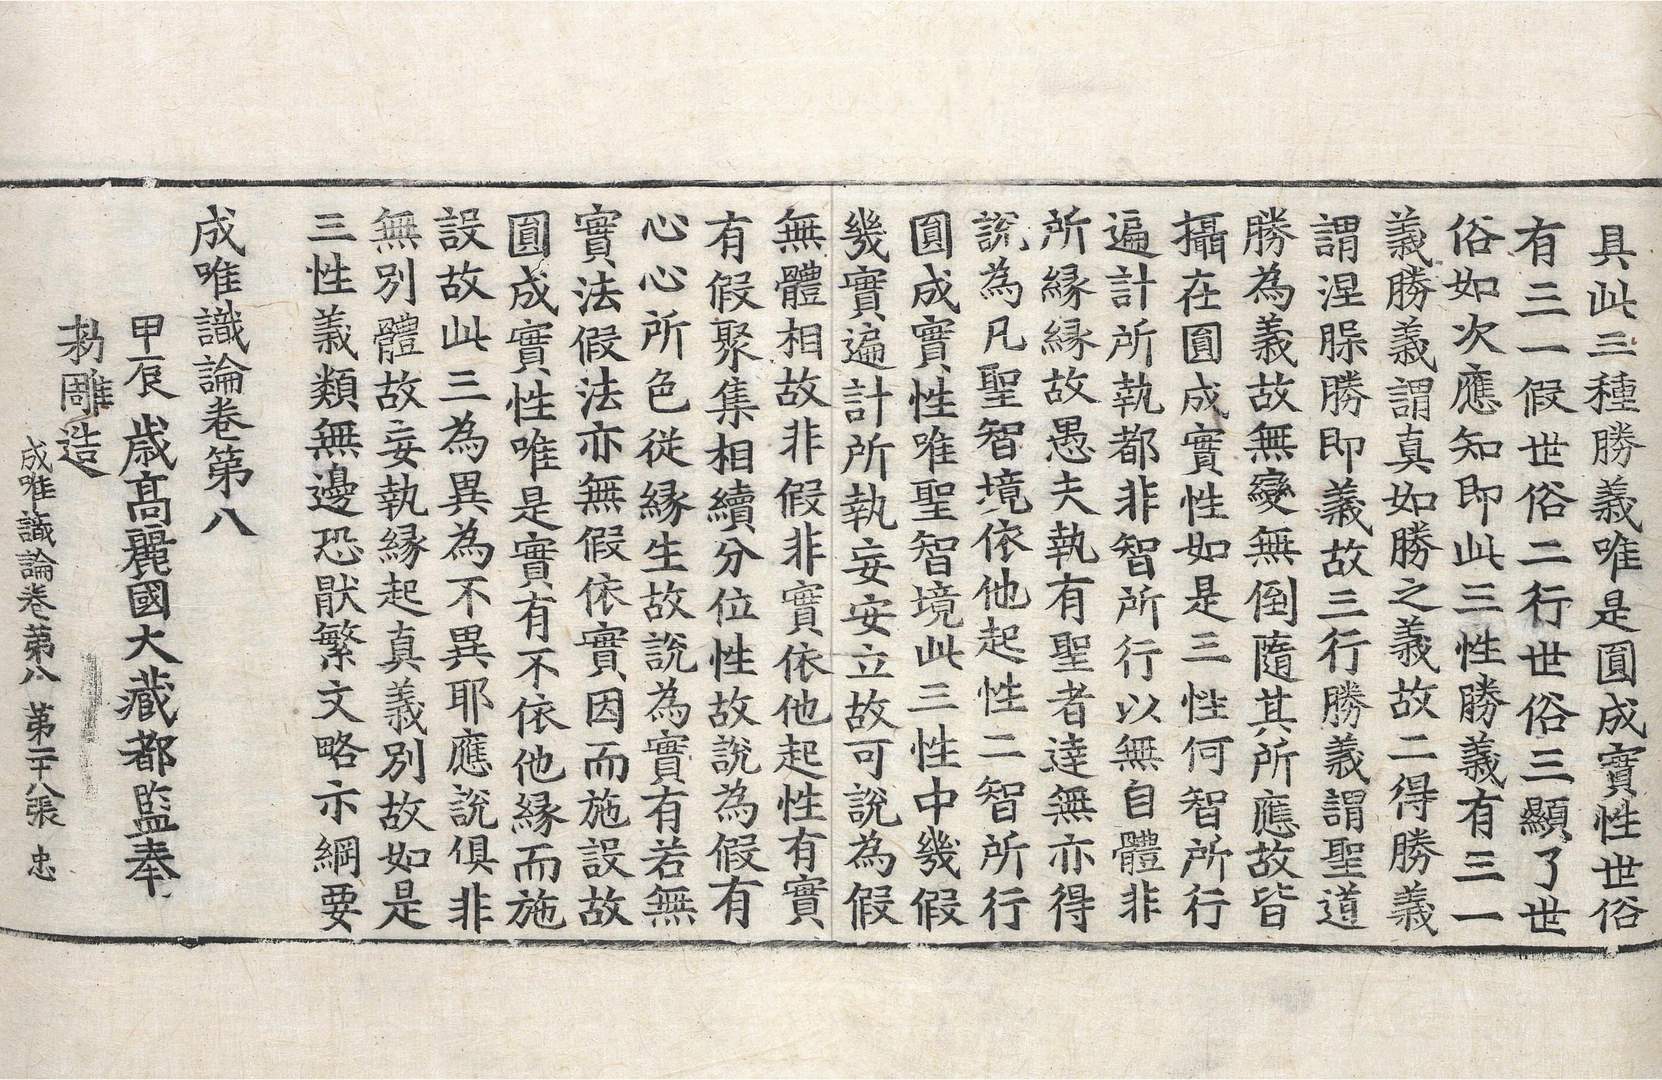 具此三種勝義唯是圓成實性世俗
有三一假世俗二行世俗三顯了世
俗如次應知即此三性勝義有三一
義勝義謂真如勝之義故二得勝義
謂涅槃勝即義故三行勝義謂聖道
勝為義故無變無倒隨其所應故皆
攝在圓成實性如是三性何智所行
遍計所執都非智所行以無自體非
所緣緣故愚夫執有聖者達無亦得
說為凡聖智境依他起性二智所行
圓成實性唯聖智境此三性中幾假
幾實遍計所執妄安立故可說為假
無體相故非假非實依他起性有實
有假聚集相續分位性故說為假有
心心所色從緣生故說為實有若無
實法假法亦無假依實因而施設故
圓成實性唯是實有不依他緣而施
設故此三為異為不異耶應說俱非
無別體故妄執緣起真義別故如是
三性義類無邊恐猒繁文略示綱要
成唯識論卷第八
甲辰歲高麗國大藏都監奉
勑雕造
成唯識論卷第八 第二十八張 忠